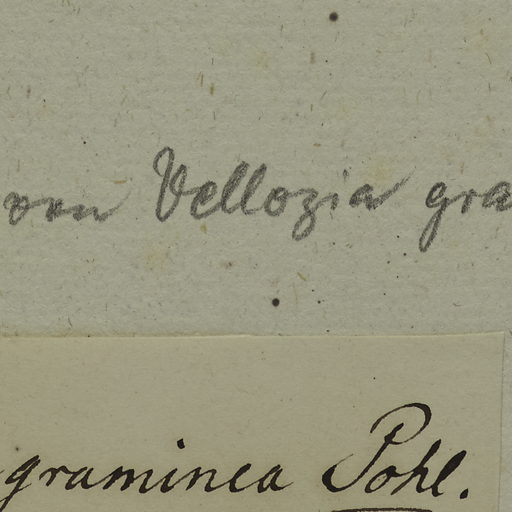 von Vellozia gra
graminea Pohl.